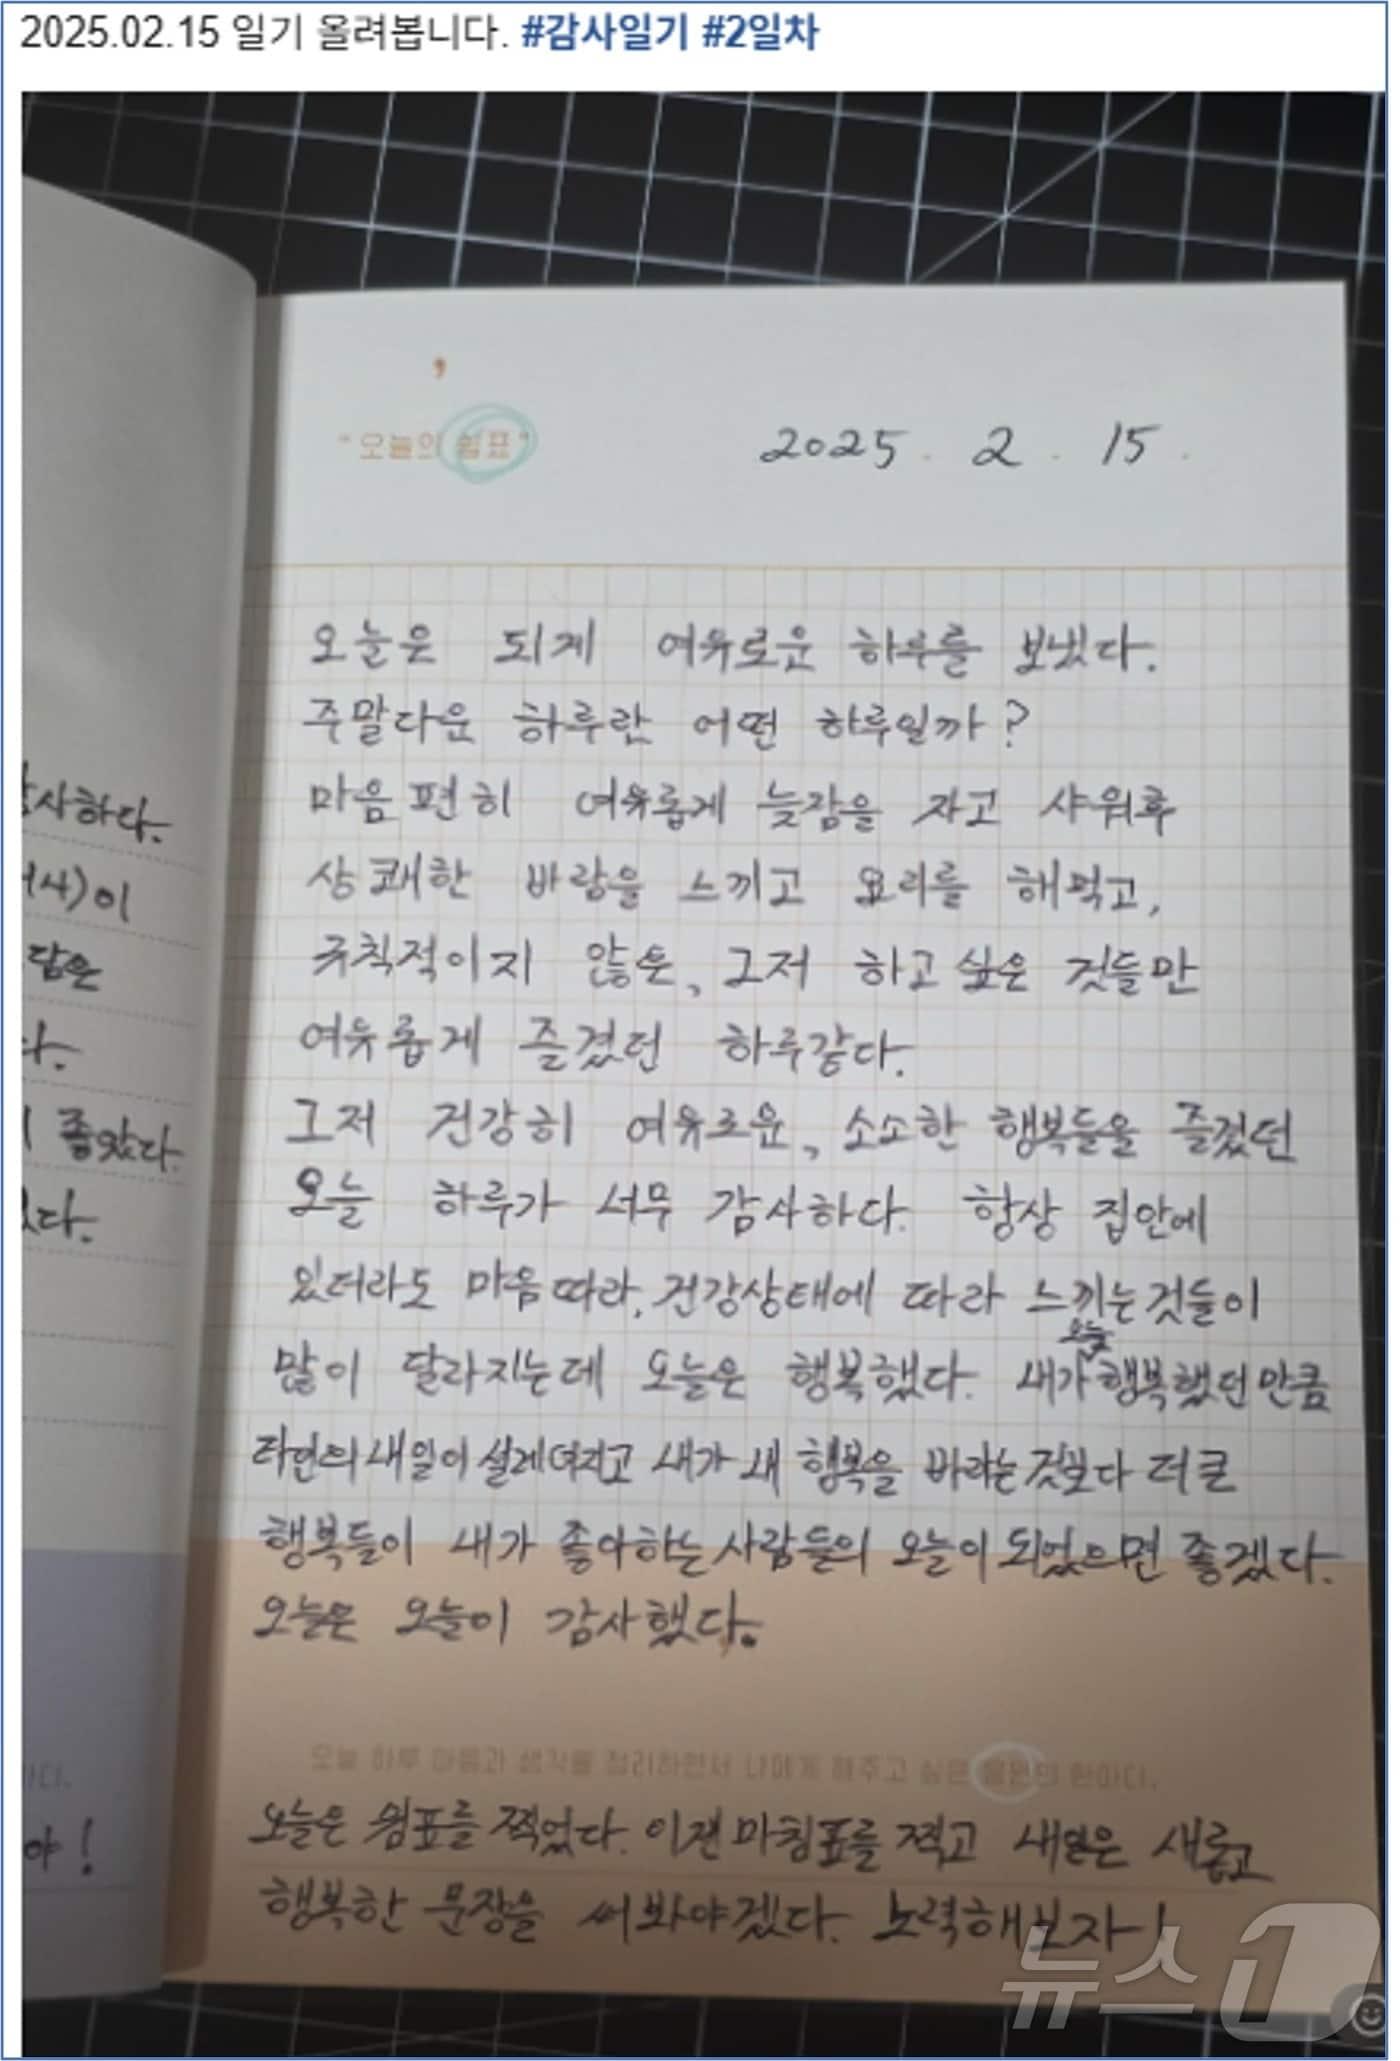 2025.02.15 일기 올려봅니다. #감사일기 #2일차
,
"오늘의 쉼표"
2025. 2. 15.
오늘은 되게 여유로운 하루를 보냈다.
주말다운 하루란 어떤 하루일까?
마음 편히 여유롭게 늦잠을 자고 샤워후
상쾌한 바람을 느끼고 요리를 해먹고,
규칙적이지 않은, 그저 하고싶은 것들만
여유롭게 즐겼던 하루같다.
그저 건강히 여유로운, 소소한 행복들을 즐겼던
오늘 하루가 너무 감사하다. 항상 집안에
있더라도 마음따라, 건강상태에 따라 느끼는것들이
많이 달라지는데 오늘은 행복했다. 내가 오늘 행복했던만큼
타인의 내일이 설레여지고 내가 내 행복을 바라는것보다 더큰
행복들이 내가 좋아하는사람들의 오늘이 되었으면 좋겠다.
오늘은 오늘이 감사했다.
오늘 하루 마음과 생각을 정리하면서 나에게 해주고 싶은 응원의 한마디.
오늘은 쉼표를 찍었다. 이젠 마침표를 찍고 내일은 새롭고
행복한 문장을 써봐야겠다. 노력해보자!
사하다.
이
담은
다.
좋았다.
다.
야!
뉴스1